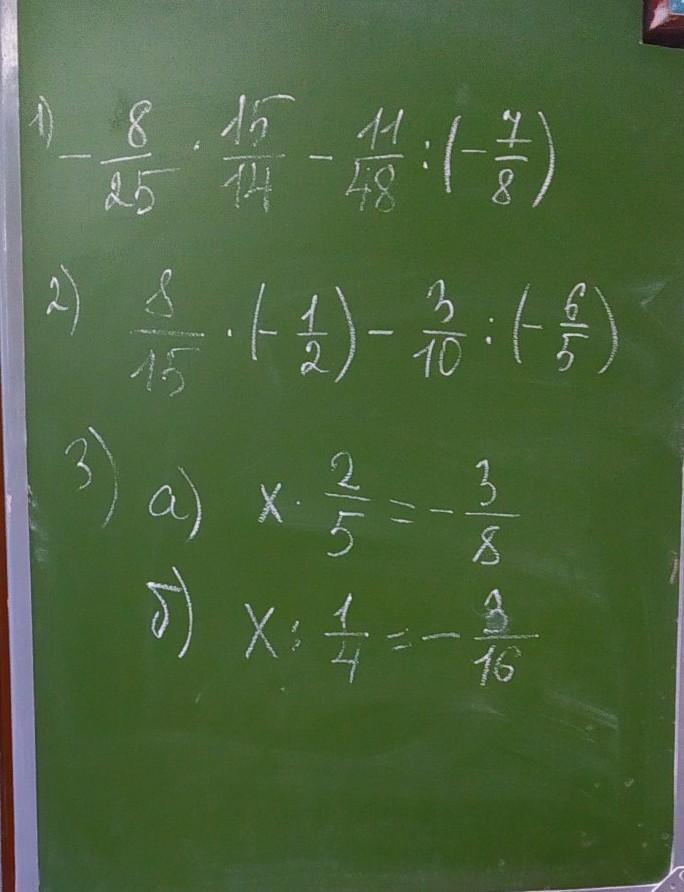 1) -8/25 · 15/14 - 11/48 : (-7/8)
2) 8/15 · (-1/2) - 3/10 : (-6/5)
3) а) x · 2/5 = -3/8
б) x : 1/4 = -3/16